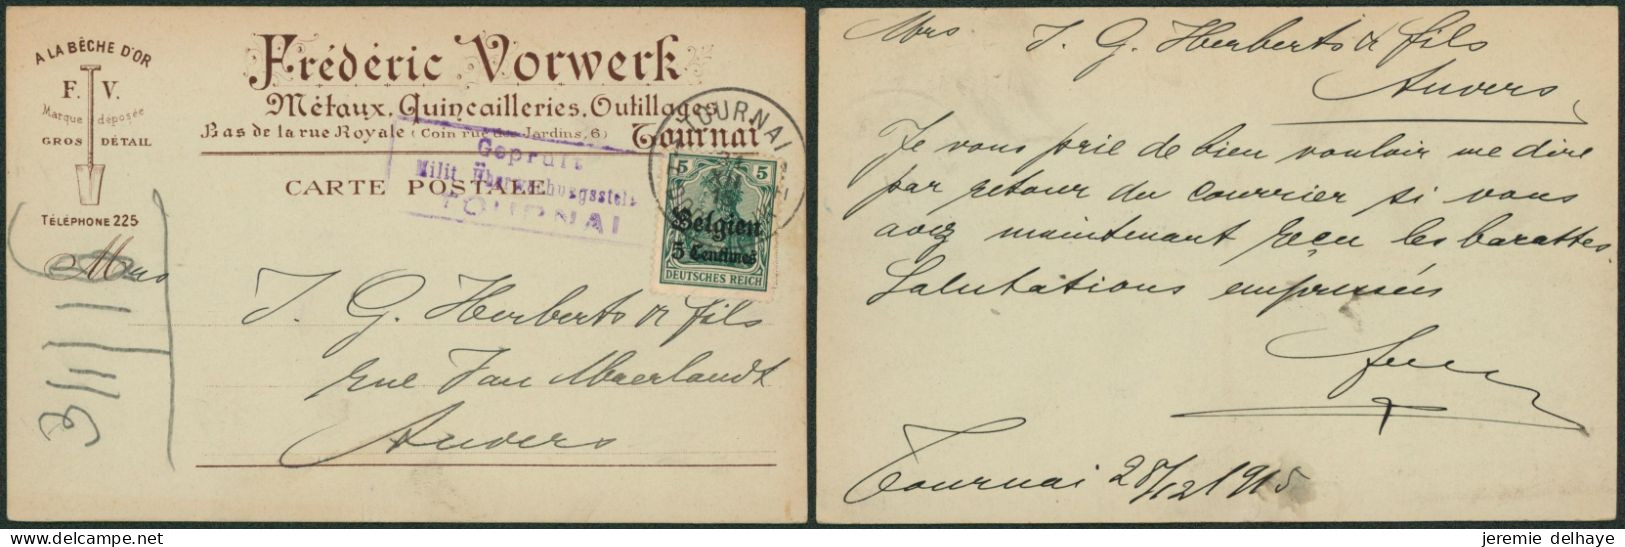 A LA BÊCHE D'OR
F. V.
Marque déposée
GROS DÉTAIL
TÉLÉPHONE 225
Frédéric Vorwerk
Métaux, Quincailleries, Outillages
Bas de la rue Royale (Coin rue des Jardins, 6) Tournai
CARTE POSTALE
Geprüft
Milit. Überwachungsstelle
TOURNAI
TOURNAI
5 5
Belgien
5 Centimes
DEUTSCHES REICH
Mrs
J. G. Herberts & fils
rue Van Maerlandt
Anvers
Mrs J. G. Herberts & fils
Anvers
Je vous prie de bien vouloir me dire
par retour du courrier si vous
avez maintenant reçu les barattes.
Salutations empressées
Tournai 28/12 1915
jeremie delhaye